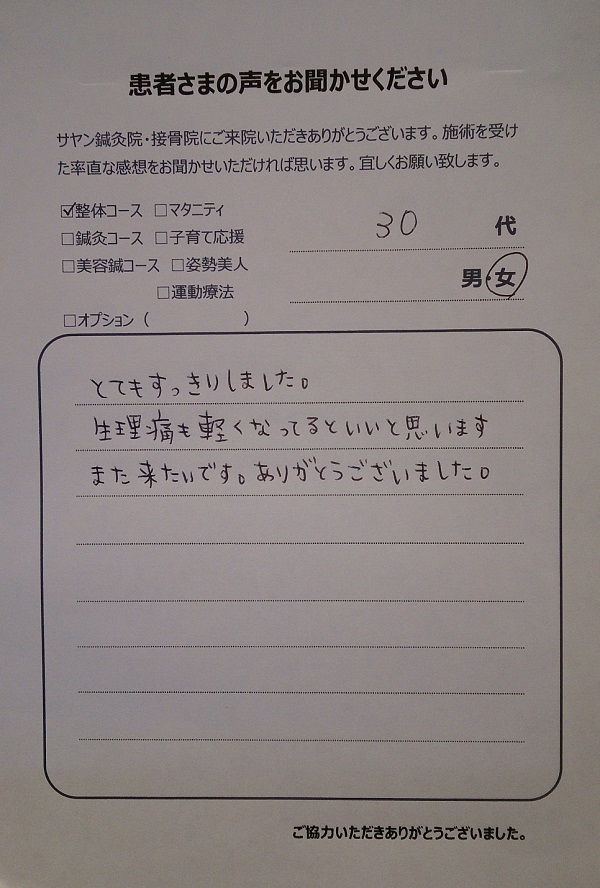 患者さまの声をお聞かせください
サヤン鍼灸院・接骨院にご来院いただきありがとうございます。施術を受け
た率直な感想をお聞かせいただければ思います。宜しくお願い致します。
☑整体コース □マタニティ
□鍼灸コース □子育て応援
□美容鍼コース □姿勢美人
□運動療法
□オプション（ ）
30 代
男・女
とてもすっきりしました。
生理痛も軽くなってるといいと思います
また来たいです。ありがとうございました。
ご協力いただきありがとうございました。